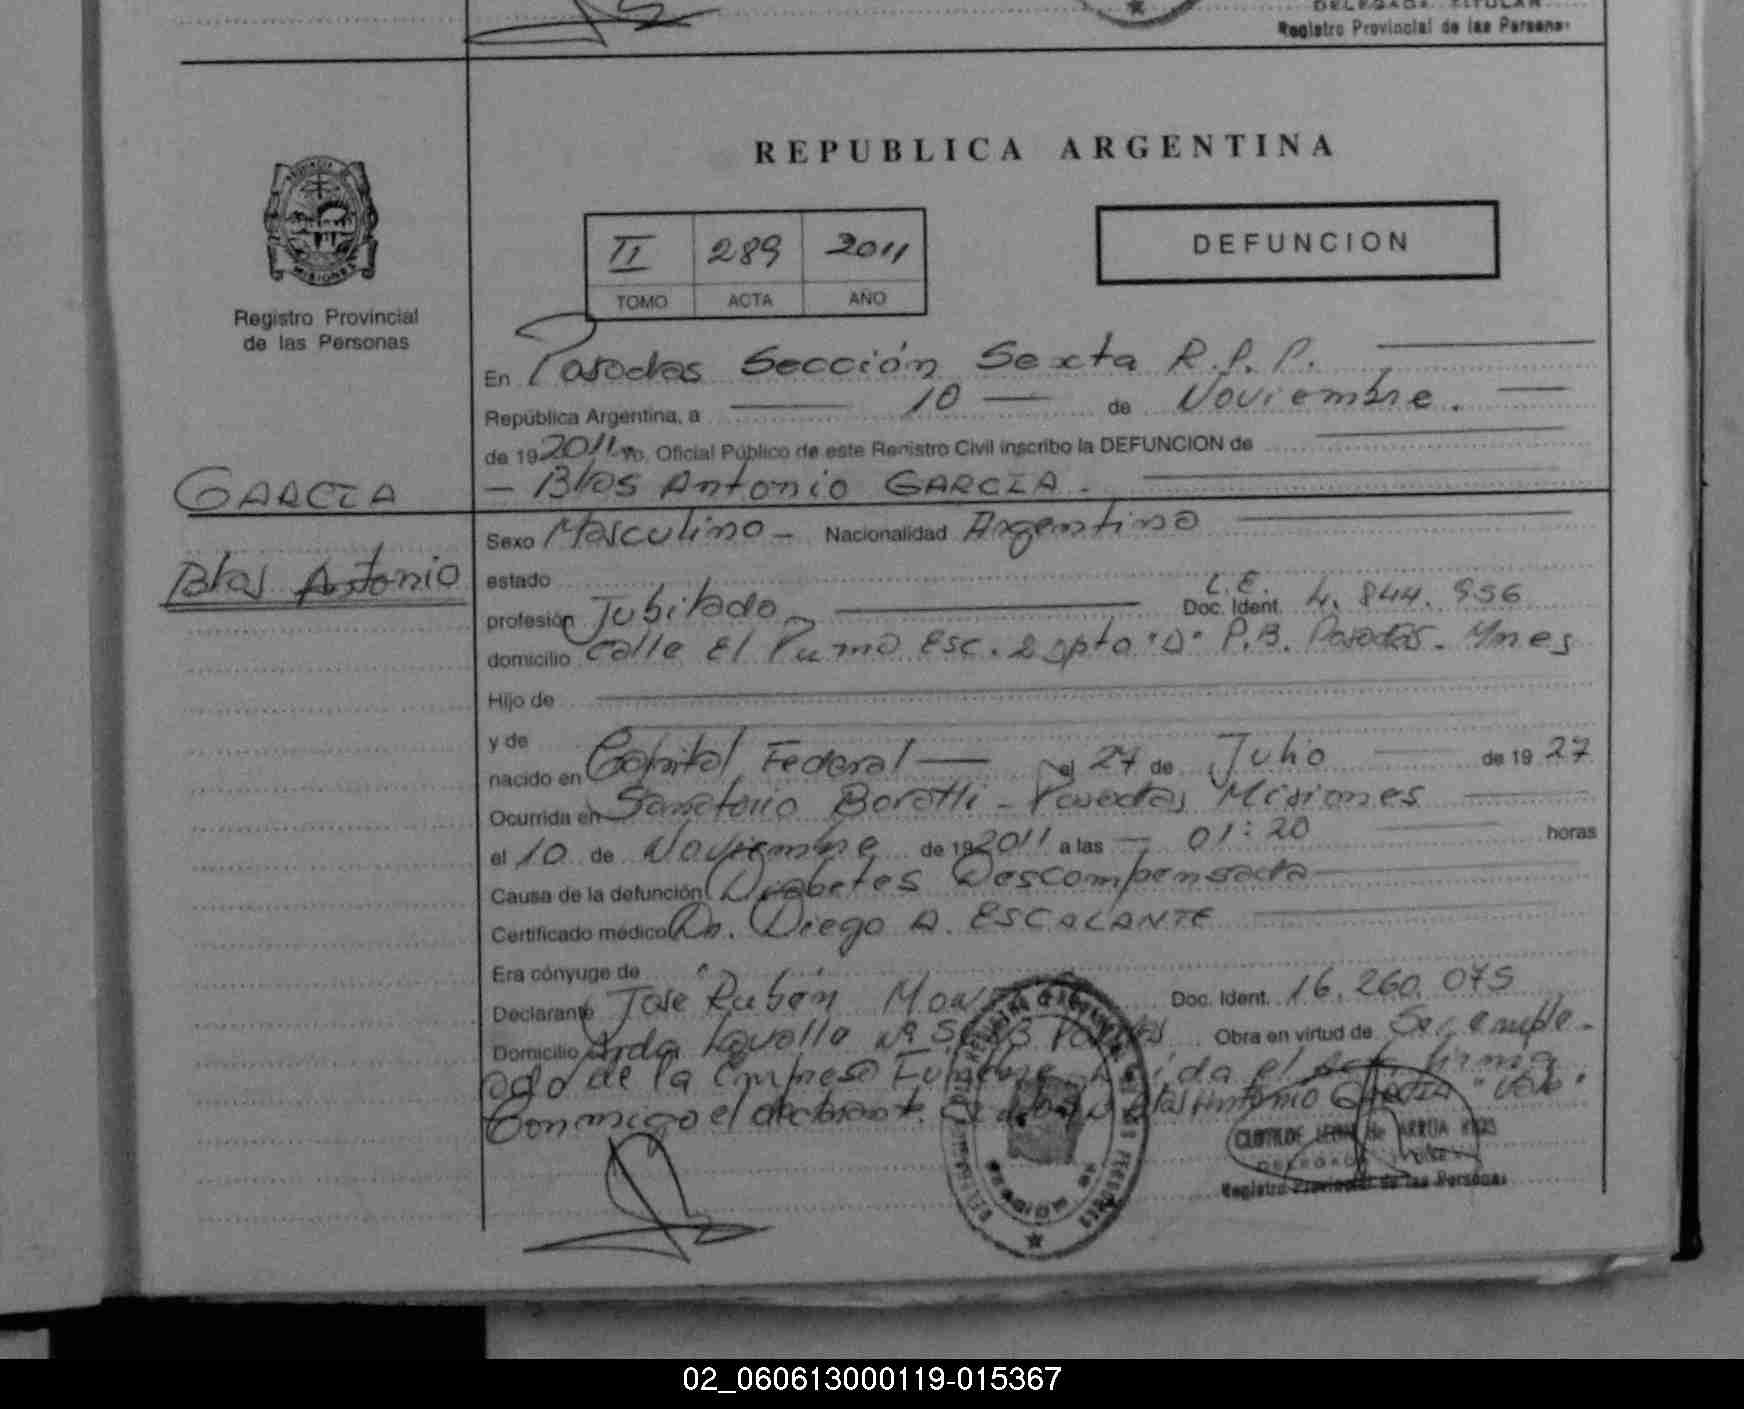 DELEGADA TITULAR
Registro Provincial de las Personas
REPUBLICA ARGENTINA
PROVINCIA
MISIONES
II 289 2011
TOMO ACTA AÑO
DEFUNCION
Registro Provincial
de las Personas
En Posadas Sección Sexta R.P.P.
República Argentina, a 10 de Noviembre.
de 19 2011 yo, Oficial Público de este Registro Civil inscribo la DEFUNCION de
- Blas Antonio GARCIA.
GARCIA
Blas Antonio
Sexo Masculino - Nacionalidad Argentina
estado
profesión Jubilado L.E. Doc. Ident. 4.844.956
domicilio Calle El Puma Esc. 2 dpto "D" P.B. Posadas - Mnes
Hijo de
y de
nacido en Capital Federal el 27 de Julio de 19 27
Ocurrida en Sanatorio Boratti - Posadas Misiones
el 10 de Noviembre de 19 2011 a las 01:20 horas
Causa de la defunción Diabetes Descompensada
Certificado médico Dr. Diego A. ESCALANTE
Era cónyuge de
Declarante José Rubén Doc. Ident. 16.260.075
Domicilio Avda Lavalle Nº Obra en virtud de Ser emple-
ado de la Empresa Fúnebre el acta firma
Conmigo el declarante. Blas Antonio "Vale"
CLOTILDE LEON de ARRUA
DELEGADA
Registro Provincial de las Personas
02_060613000119-015367